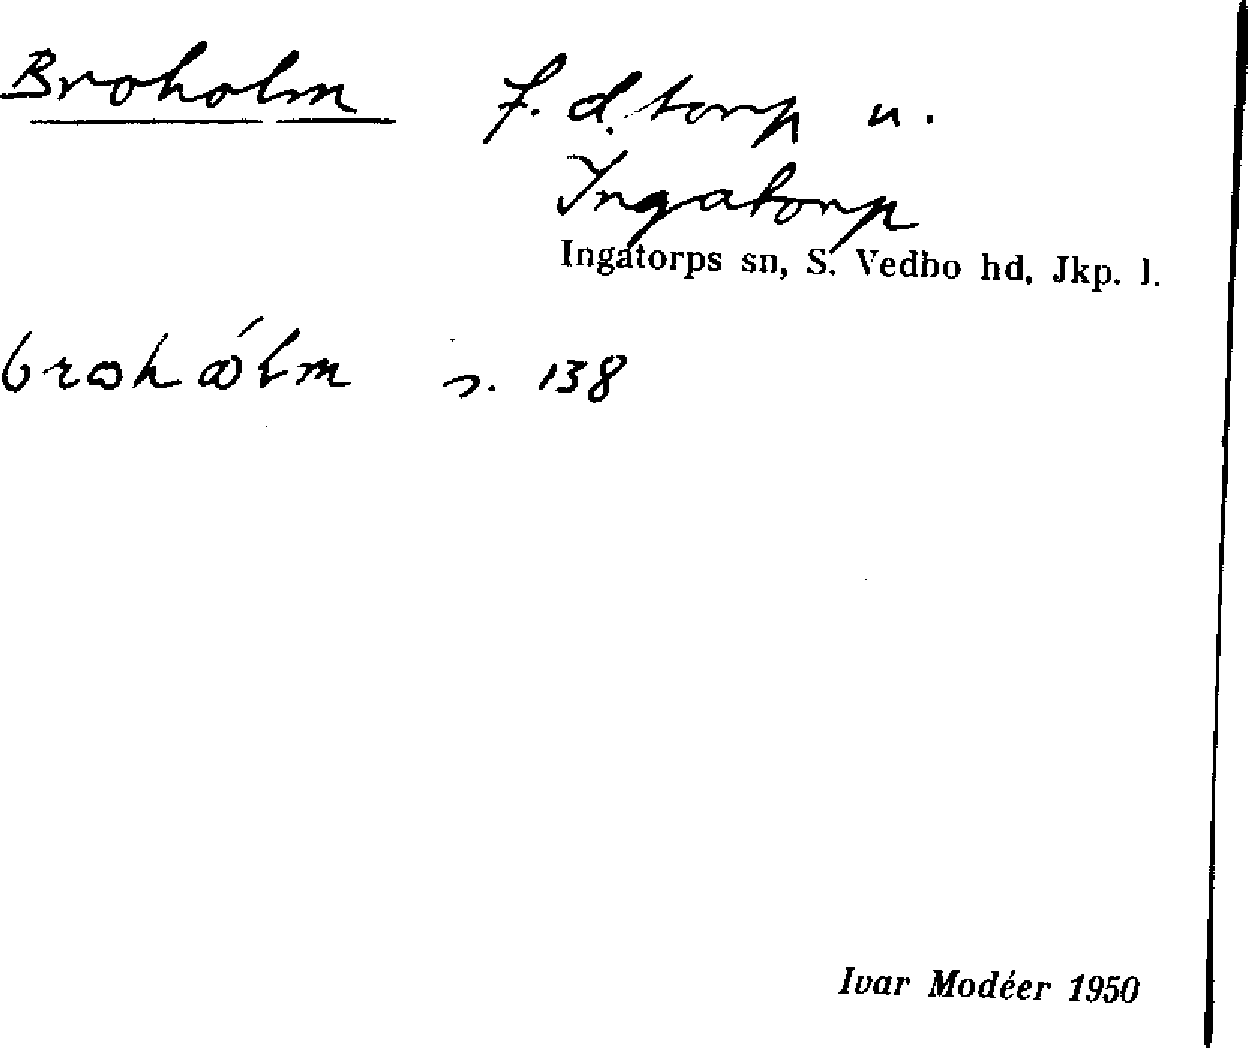 Broholm f. d. torp u.
Ingatorp
Ingatorps sn, S. Vedbo hd, Jkp. l.
s. 138
Ivar Modéer 1950